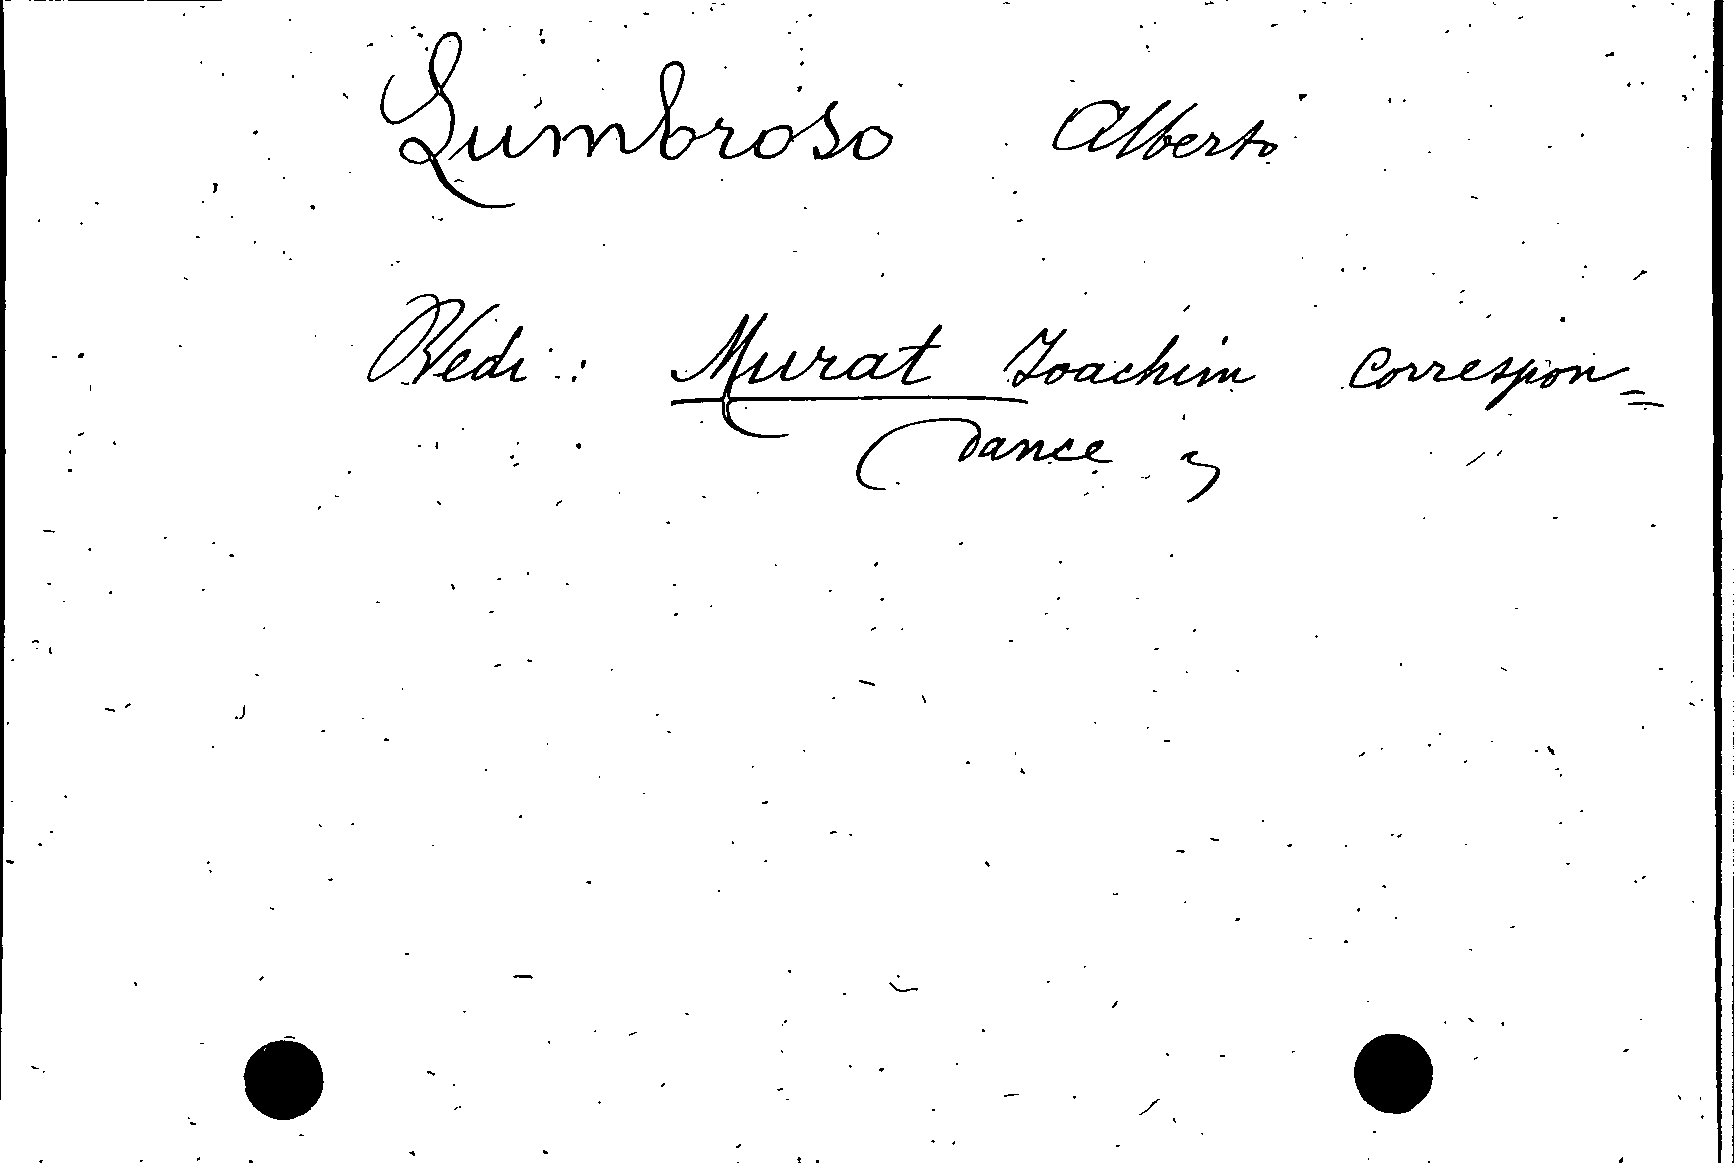 Lumbroso Alberto
Vedi: Murat Joachim Correspon=
dance